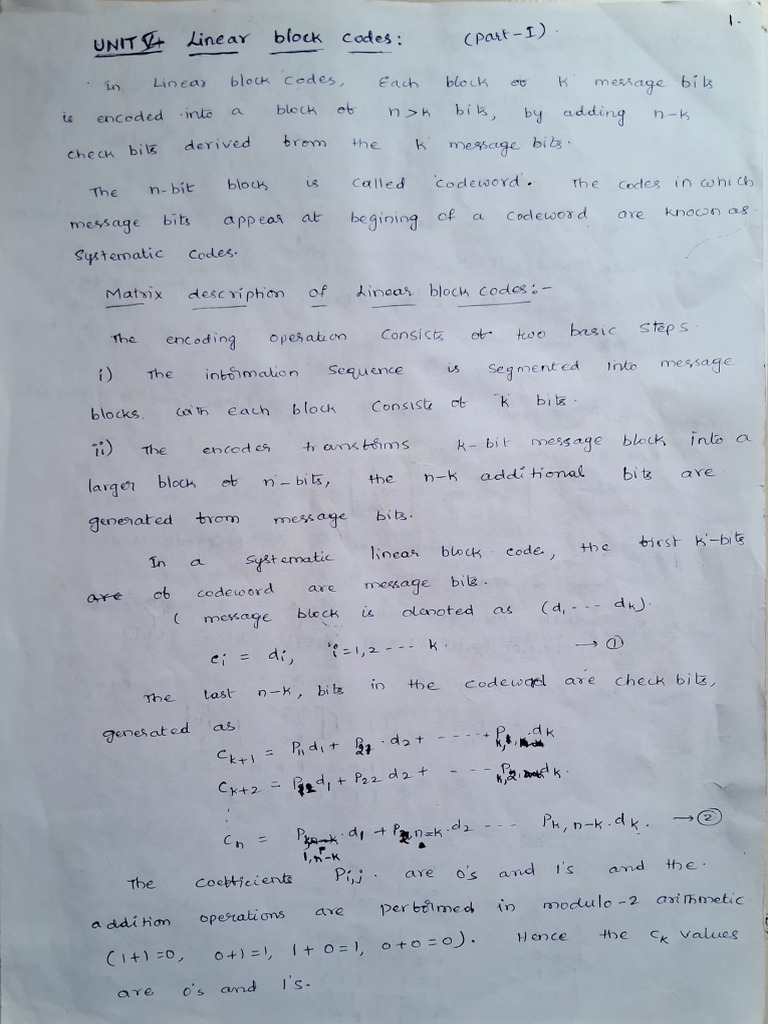 1.
UNIT V Linear block codes: (Part-I).
In Linear block codes, Each block of k message bits
is encoded into a block of n>k bits, by adding n-k
check bits derived from the k message bits.
The n-bit block is called 'codeword'. The codes in which
message bits appear at begining of a codeword are known as
Systematic codes.
Matrix description of Linear block codes:-
The encoding operation consists of two basic steps
i) The information sequence is segmented into message
blocks. with each block consists of k bits.
ii) The encoder transforms k-bit message block into a
larger block of n-bits, the n-k additional bits are
generated from message bits.
In a systematic linear block code, the first k-bits
of codeword are message bits.
( message block is denoted as (d1 --- dk).
ci = di, i=1,2 --- k. → ①
The last n-k, bits in the codeword are check bits,
generated as
Ck+1 = P11d1 + P21·d2 + ----- + Pk,1·dk
Ck+2 = P12d1 + P22 d2 + --- Pk,2 dk.
⋮
Cn = P1,n-k·d1 + P2,n-k·d2 --- Pk,n-k·dk. → ②
The coefficients Pi,j. are 0's and 1's and the.
addition operations are performed in modulo-2 arithmetic
(1+1=0, 0+1=1, 1+0=1, 0+0=0). Hence the Ck values
are 0's and 1's.